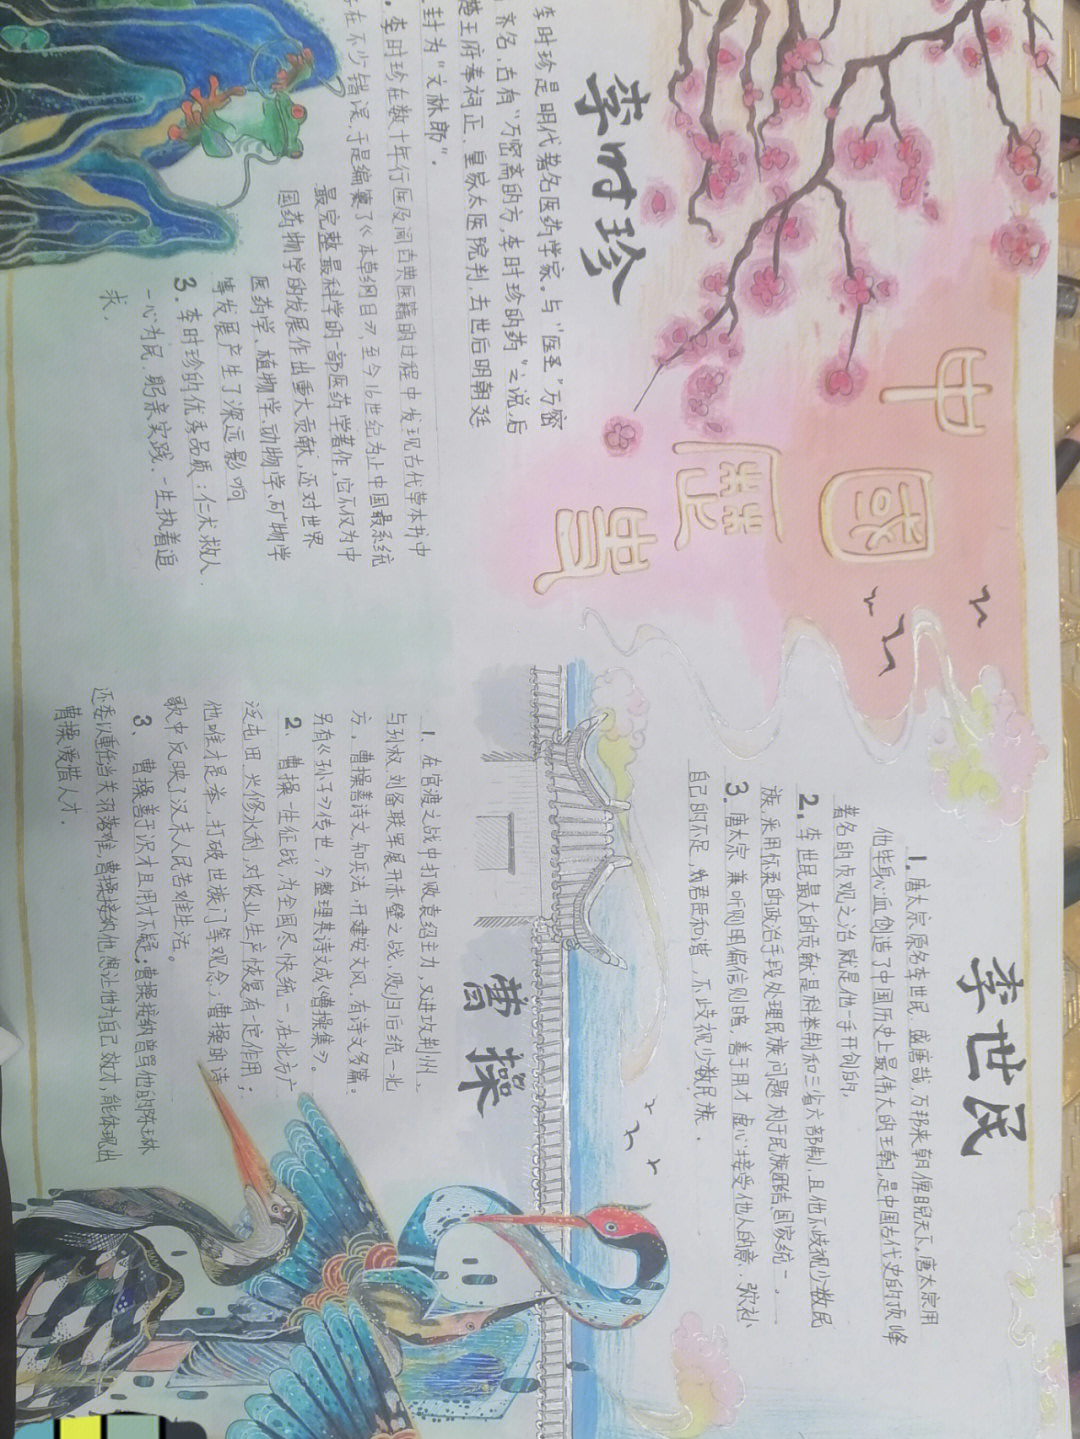 中國歷史
李时珍
李时珍是明代著名医药学家。与"医圣"万密
齐名,古有"万密斋的方,李时珍的药"之说,后
楚王府奉祠正、皇家太医院判,去世后明朝廷
封为"文林郎"。
李时珍在数十年行医及阅古典医籍的过程中发现古代草本书中
在不少错误,于是编纂了《本草纲目》,至今16世纪为止中国最系统
最完整最科学的一部医药学著作,它不仅为中
国药物学的发展作出重大贡献,还对世界
医药学、植物学、动物学、矿物学
等发展产生了深远影响
3.李时珍的优秀品质:仁术救人.
一心为民、躬亲实践、一生执着追
求.
李世民
1.唐太宗原名李世民,盛唐哉,万邦来朝俾睨天下,唐太宗用
他毕身心血创造了中国历史上最伟大的王朝,是中国古代史的顶峰
著名的贞观之治就是他一手开创的,
2.李世民最大的贡献是科举制和三省六部制,且他不歧视少数民
族,采用怀柔的政治手段处理民族问题,利于民族团结国家统一.
3.唐太宗兼听则明偏信则暗,善于用才虚心接受他人的意.弥补
自己的不足,为君臣和谐,不歧视少数民族.
曹操
1.在官渡之战中打败袁绍主力,又进攻荆州、
与孙权、刘备联军展开赤壁之战,败归后统一北
方。曹操善诗文,知兵法,开建安文风,有诗文多篇。
另有《孙子》传世,今整理其诗文成《曹操集》。
2、曹操一生征战,为全国尽快统一,在北方广
泛屯田,兴修水利,对农业生产恢复有一定作用;
他唯才是举,打破世族门等观念;曹操的诗
歌中反映了汉末人民苦难生活。
3、曹操善于识才且用才不疑;曹操接纳曾骂他的陈琳
还委以重任当关羽落难,曹操接纳他想让他为自己效力,能体现出
曹操爱惜人才.